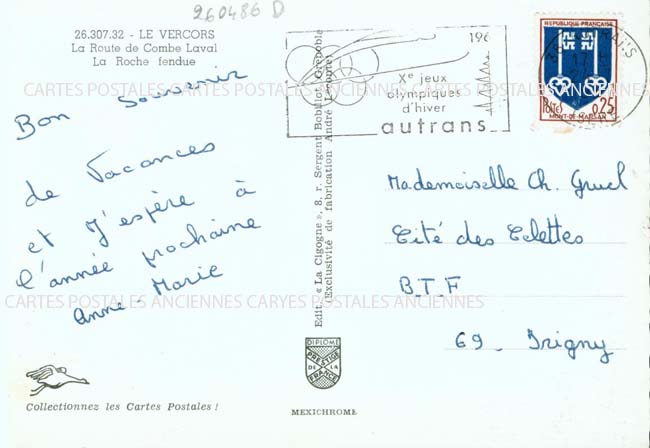 260486 D
26.307.32 - LE VERCORS
La Route de Combe Laval
La Roche fendue
Bon Souvenir
de Vacances
et J'espère à
l'année prochaine
Anne-Marie
Collectionnez les Cartes Postales !
Edit. « La Cigogne », 8, r. Sergent Bobillot, Grenoble
(Exclusivité de fabrication André Leconte)
DIPLOME
PRESTIGE
DE LA
FRANCE
MEXICHROME
196
Xe jeux
olympiques
d'hiver
autrans
REPUBLIQUE FRANÇAISE
POSTES
0,25
MONT-DE-MARSAN
Mademoiselle Ch. Gruel
Cité des Célettes
B.T.F
69 - Irigny
CARTES POSTALES ANCIENNES CARTES POSTALES ANCIENNES
CARTES POSTALES ANCIENNES CARYES POSTALES ANCIENNES